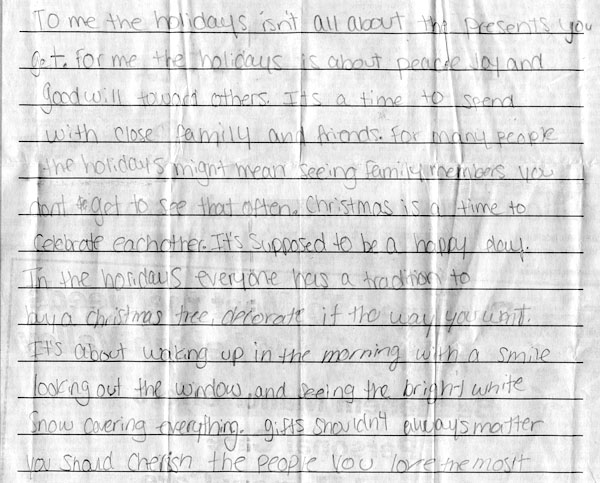 To me the holidays isn't all about the presents you
get. For me the holidays is about peace joy and
goodwill toward others. Its a time to spend
with close family and friends. For many people
the holidays might mean seeing family members you
dont get to see that often. Christmas is a time to
celebrate eachother. It's supposed to be a happy day.
In the holidays everyone has a tradition to
buy a christmas tree, decorate it the way you want.
It's about waking up in the morning with a smile
looking out the window, and seeing the bright white
snow covering everything. gifts shouldn't always matter
you should cherish the people you love the most